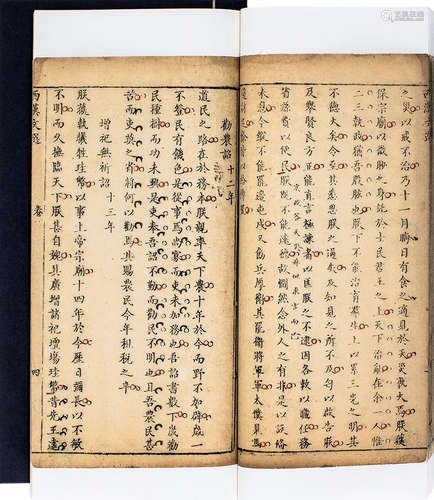 之災以戒不治乃十一月晦日有食之適見於天災孰大焉朕獲
保宗廟以微眇之身託於士民君王之上天下治亂在余一人惟
二三執政猶吾股肱也朕下不能治育群生上以累三光之明其
不德大矣令至其悉思朕之過失及知見之所不及匄以啟告朕
及舉賢良方正能直言極諫者以匡朕之不逮因各敕以職任務
省繇費以便民朕既不能遠德故憪然念外人之有非是以設備
未息今縱不能罷邊屯戍又飭兵厚衛其罷衛將軍軍太僕見馬
勸農詔 十二年
道民之路在於務本朕親率天下農十年於今而野不加辟歲一
不登民有飢色是從事焉尚寡而吏未加務也吾詔書數下歲勸
民種樹而功未興是吏奉吾詔不勤而勸民不明也且吾農民甚
苦而吏莫之省將何以勸焉其賜農民今年租稅之半
增祀無祈詔 十三年
朕獲執犧牲珪幣以事上帝宗廟十四年於今歷日彌長以不敏
不明而久撫臨天下朕甚自媿其廣增諸祀壇場珪幣昔先王遠
西漢文選 卷 四